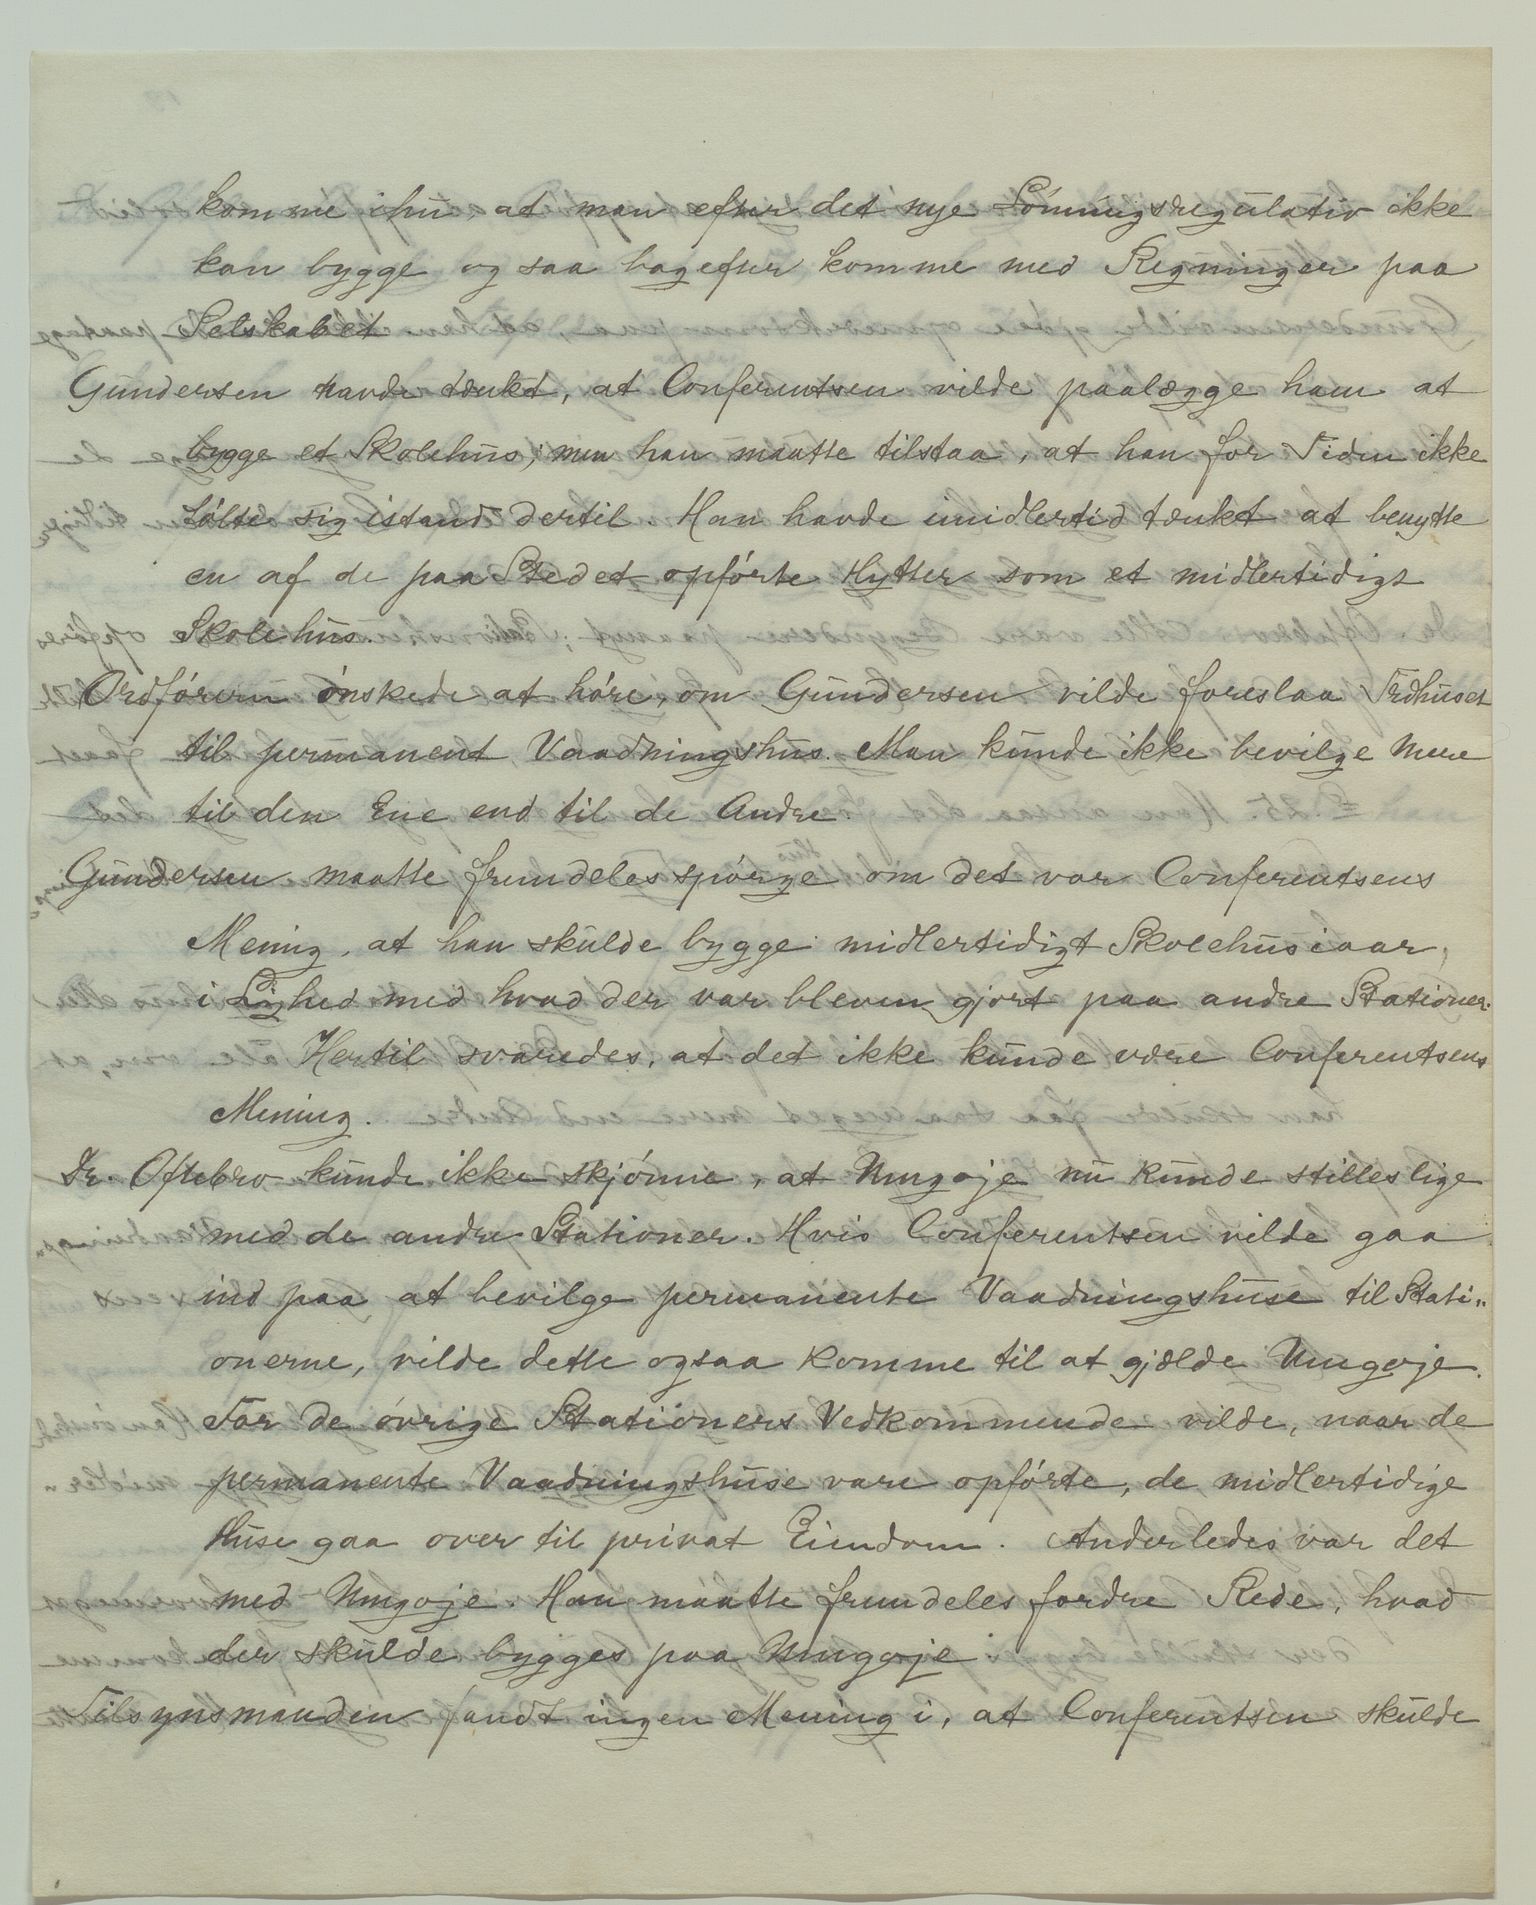 komme ihu at man efter det nye Lönningsregulativ ikke
kan bygge og saa bagefter komme med Regninger paa
Selskabet
Gundersen havde tænkt, at Conferentsen vilde paalægge ham at
bygge et Skolehus; men han maatte tilstaa, at han for Tiden ikke
fölte sig istand dertil. Han havde imidlertid tænkt at benytte
en af de paa Stedet opförte Hytter som et midlertidigt
Skolehus.
Ordföreren önskede at höre, om Gundersen vilde foreslaa Træhuset
til permanent Vaadningshus. Man kunde ikke bevilge mere
til den Ene end til de Andre
Gundersen maatte fremdeles spörge om det var Conferentsens
Mening, at han skulde bygge midlertidigt Skolehus iaar,
i Lighed med hvad der var bleven gjort paa andre Stationer.
Hertil svaredes, at det ikke kunde være Conferentsens
Mening.
Dr. Oftebro kunde ikke skjönne, at Umgoje nu kunde stilles lige
med de andre Stationer. Hvis Conferentsen vilde gaa
ind paa at bevilge permanente Vaadningshuse til Stati„
onerne, vilde dette ogsaa komme til at gjælde Umgoje.
For de övrige Stationers Vedkommende vilde, naar de
permanente Vaadningshuse vare opförte, de midlertidige
Huse gaa over til privat Eiendom. Anderledes var det
med Umgoje. Han maatte fremdeles fordre Rede, hvad
der skulde bygges paa Umgoje
Tilsynsmanden fandt ingen Mening i, at Conferentsen skulde